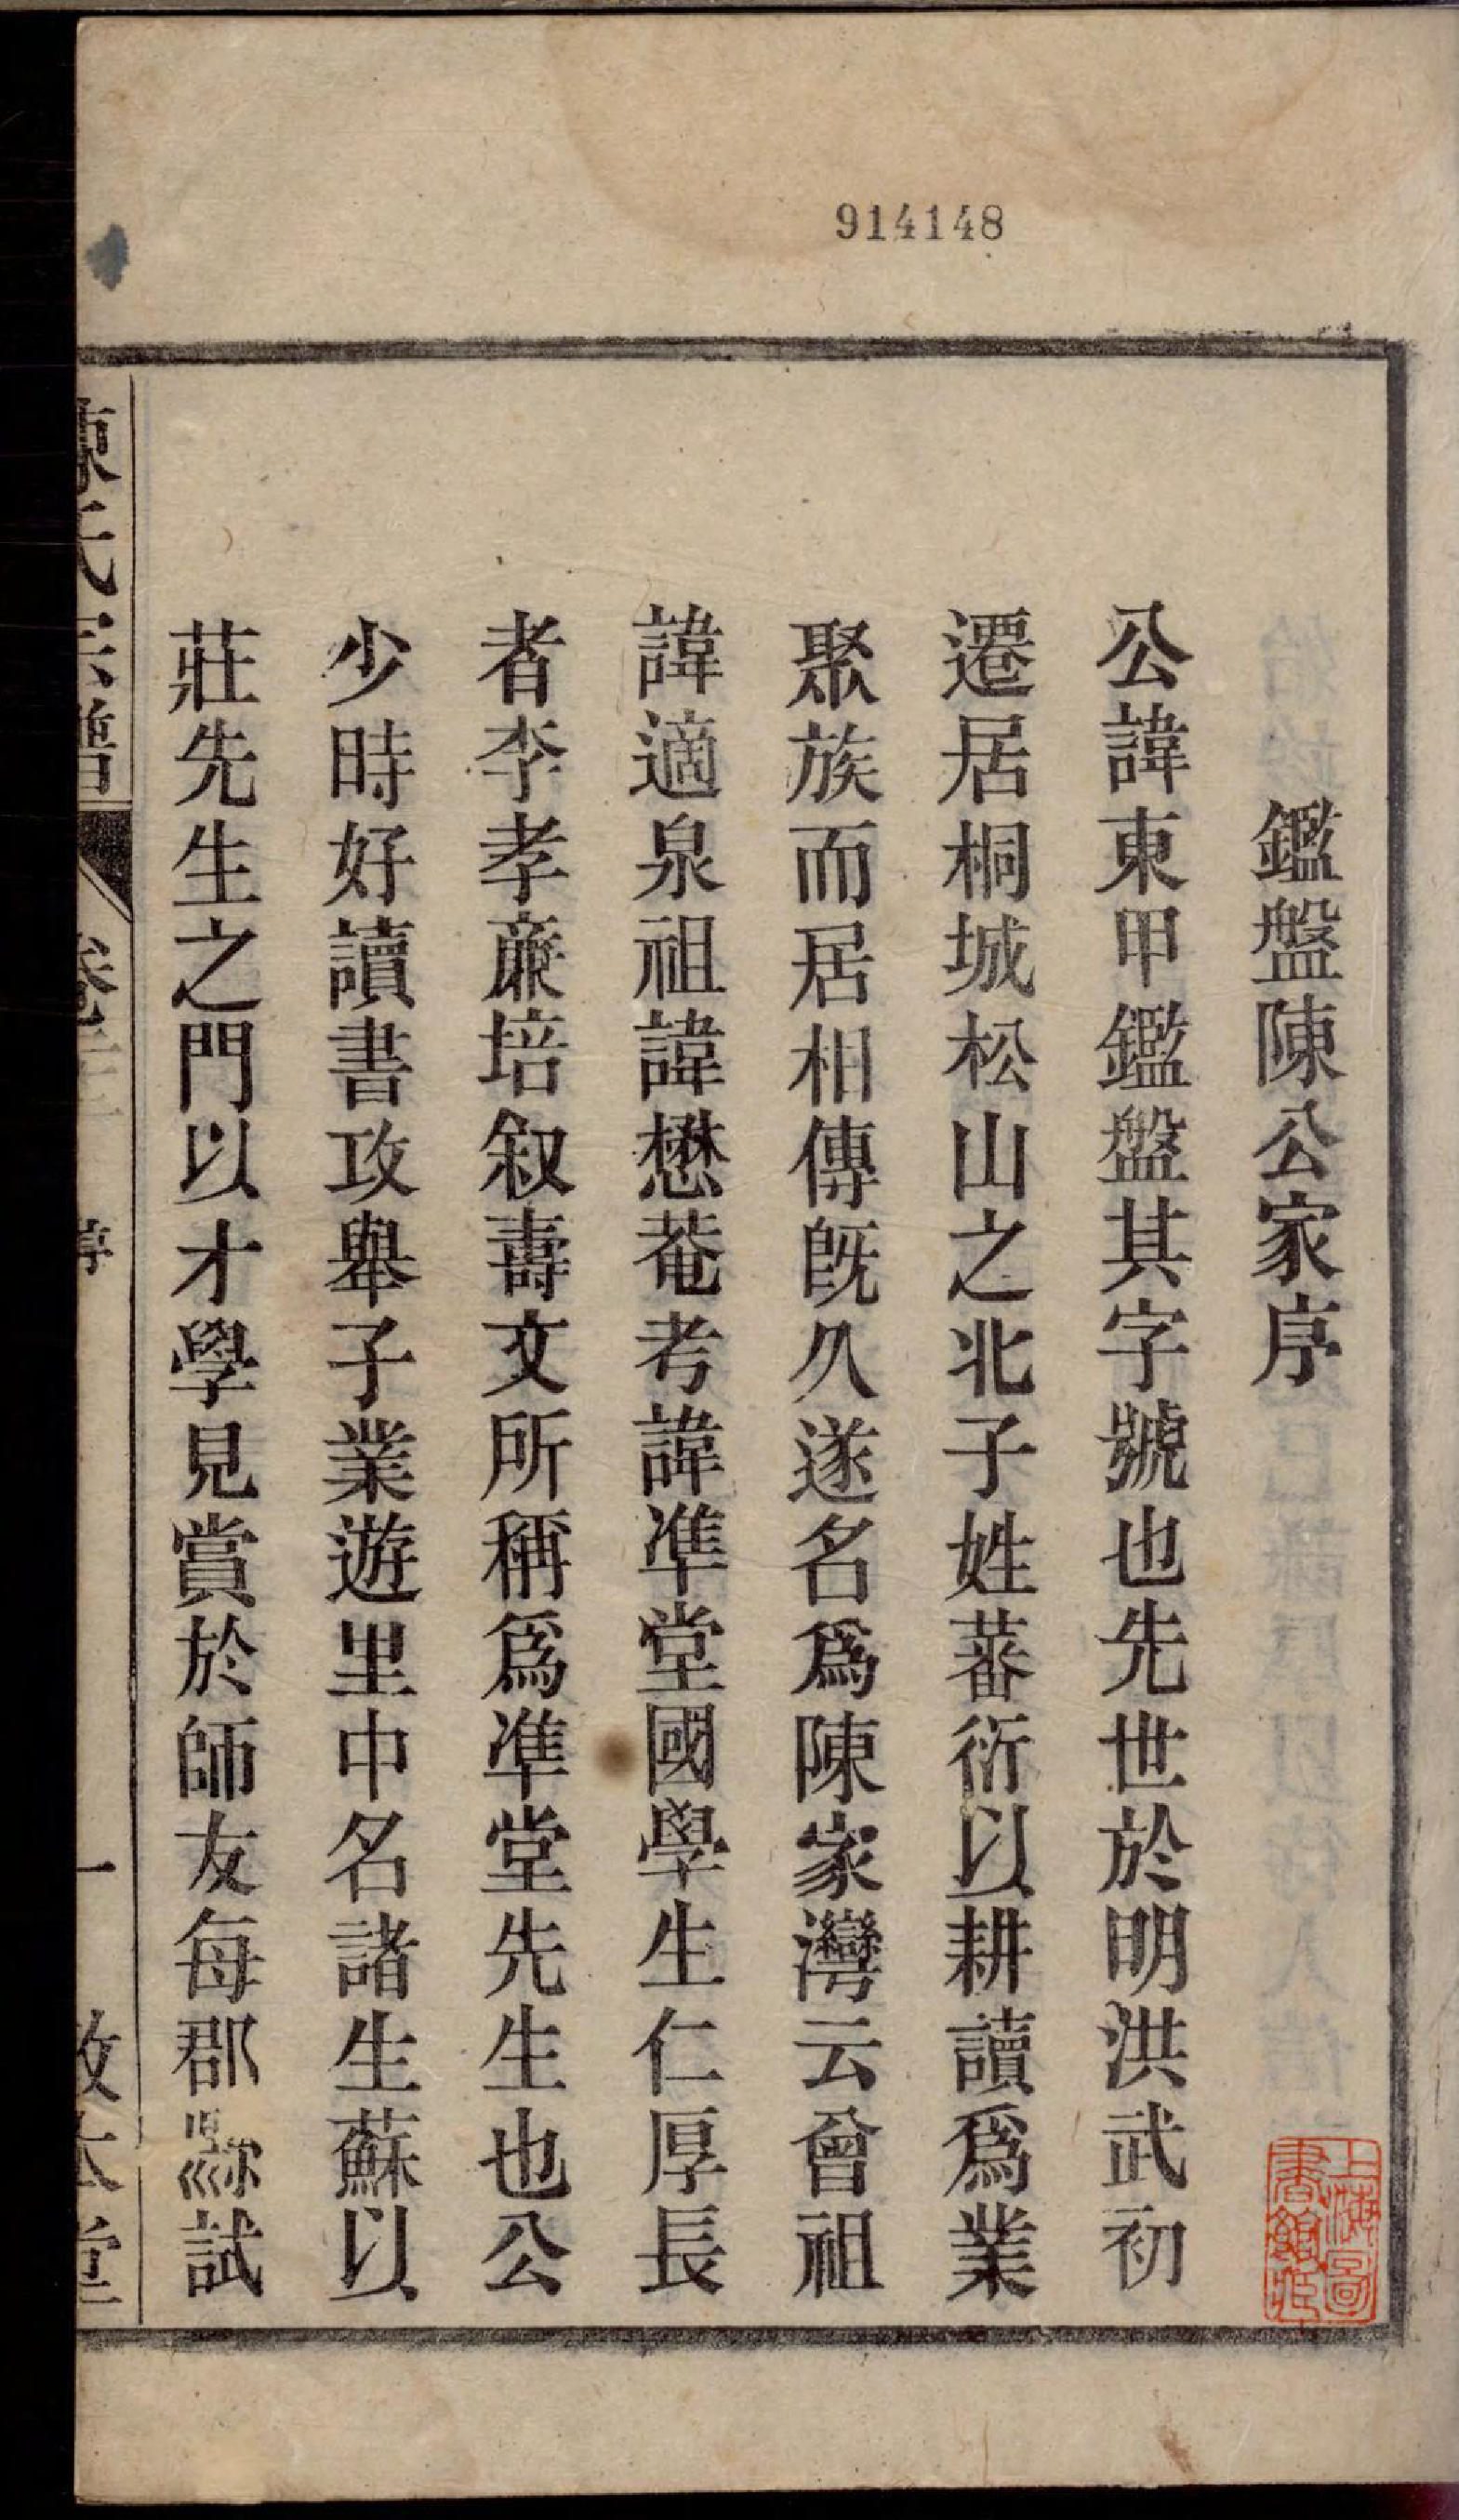 914148
鑑盤陳公家序
公諱東甲鑑盤其字號也先世於明洪武初
遷居桐城松山之北子姓蕃衍以耕讀爲業
聚族而居相傳既久遂名爲陳家灣云曾祖
諱適泉祖諱懋菴考諱準堂國學生仁厚長
者李孝亷培叙壽文所稱爲準堂先生也公
少時好讀書攻舉子業遊里中名諸生蘇以
莊先生之門以才學見賞於師友每郡縣試
陳氏宗譜 卷 一 敦本堂
上海圖書館藏